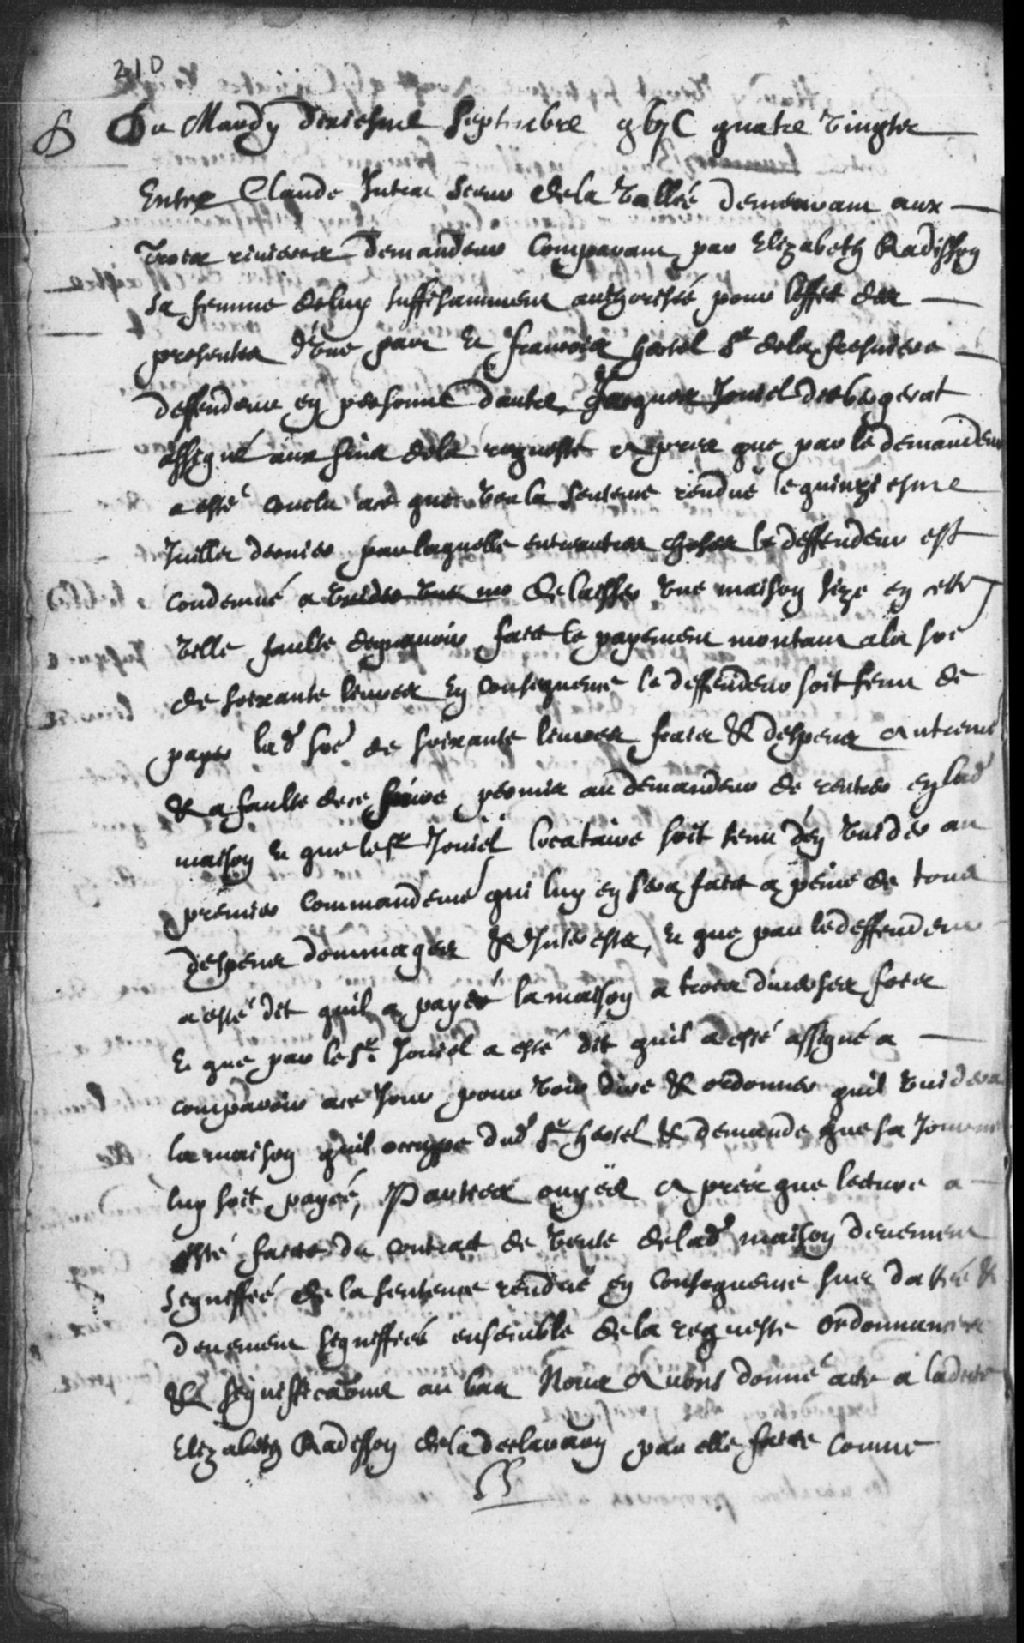 210
Du Mardy dixiesme Septembre gbjC quatre vingtz
Entre Claude Jutras Sieur de la Vallée demeurant aux
trois rivieres demandeur Comparant par Elizabeth Radisson
sa femme de luy suffisamment authorisée pour leffet des
presentes d'une part Et francois hertel Sr de la fresniere
deffendeur en personne dautre, Jacques Joniel de
assigné aux fins de la requeste apres que par le demandeur
a esté conclu ace que veu la sentence rendue le quinziesme
Juillet dernier par laquelle entreautres choses le deffendeur est
condemné a vuider une mo delaisser une maison size en cette
ville faulte dynavoir faict le payement montant ala soe
de soixante livres En consequence le deffendeur soit tenu de
payer lad soe de soixante livres frais & despens autremt
& a faulte de ce faire permis au demandeur de rentrer en lad
maison Et que le Sr Joniel locataire soit tenu d'en vuider au
premier commandemt qui luy en sera faict a peine de tous
despens dommages & Interestz, Et que par le deffendeur
a esté dit quil a payée la maison a trois diverses fois
Et que par le Sr Joniel a esté dit quil a esté assigné a
comparoir ace Jour pour voir dire & ordonner quil vuidera
la maison quil occuppe dud Sr hertel & demande que sa Journée
luy soit payée, Parties ouyes apres que lecture a
esté faicte du contract de vente de lad maison deuement
signiffié de la sentence rendue en consequence
deuement signiffiée ensemble de la requeste ordonnance
& signification au bas Nous avons donné acte a ladite
Elizabeth Radisson de la declaraon par elle faicte comme